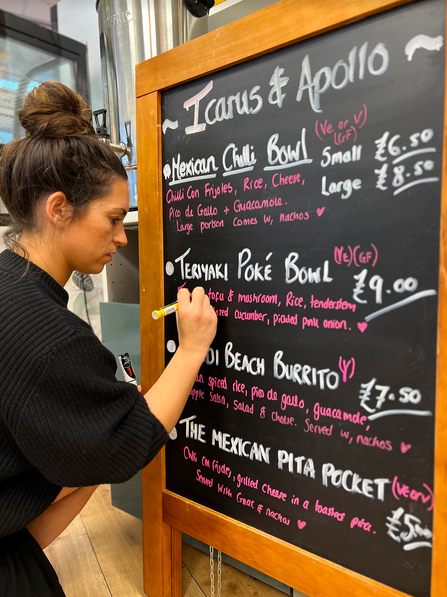 ~ Icarus & Apollo ~
Mexican Chilli Bowl (Ve or V) (GF)
Small £6.50
Large £8.50
Chilli Con Frijoles, Rice, Cheese,
Pico de Gallo + Guacamole.
Large portion comes w, nachos ♥
TERIYAKI POKÉ BOWL (VE)(GF)
£9.00
tofu & mushroom, Rice, tenderstem
cucumber, pickled pink onion. ♥
BEACH BURRITO (V)
£7.50
spiced rice, pico de gallo, guacamole,
Salsa, Salad & cheese. Served w, nachos ♥
THE MEXICAN PITA POCKET (VE or V)
Chilli con frijoles, grilled cheese in a toasted pita.
Served with Guac & nachos ♥